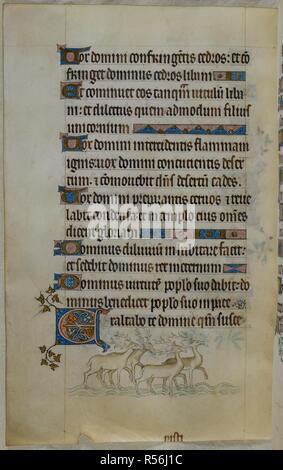 Vox domini confringentis cedros: et con
fringet dominus cedros libani
Et cominuet eos tanquam vitulum liba
ni: et dilectus quemadmodum filius
unicornium
Vox domini intercidentis flammam
ignis: vox domini concutientis deser
tum: et comovebit dns desertum cades.
Vox domini preparantis cervos et reve
labit condensa: et in templo eius omnes
dicent gloriam
Dominus diluvium inhabitare facit:
et sedebit dominus rex in eternum
Dominus virtutem poplo suo dabit: do
minus benedicet poplo suo in pace.
Exaltabo te domine qm susce
alamy
Image ID: R56J1C
www.alamy.com